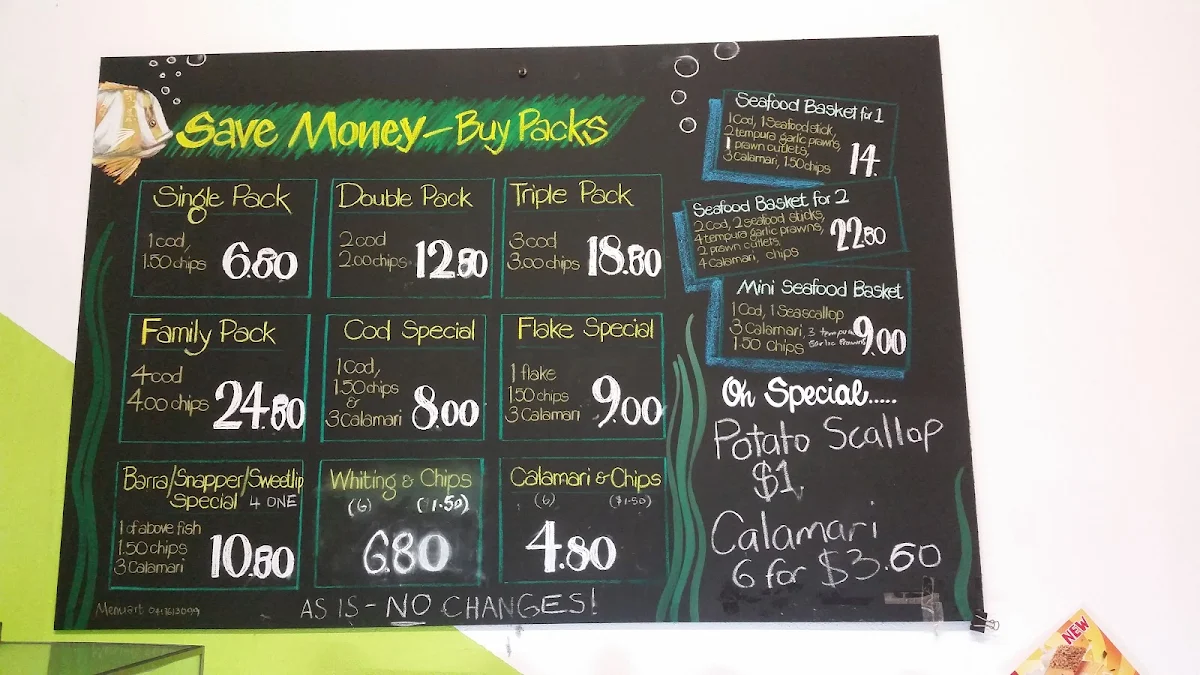 Save Money - Buy Packs
Single Pack
1 cod,
1.50 chips
6.80
Double Pack
2 cod
2.00 chips
12.80
Triple Pack
3 cod
3.00 chips
18.80
Family Pack
4 cod
4.00 chips
24.80
Cod Special
1 Cod,
1.50 chips
&
3 Calamari
8.00
Flake Special
1 flake
1.50 chips
3 Calamari
9.00
Barra/Snapper/Sweetlip
Special 4 ONE
1 of above fish
1.50 chips
3 Calamari
10.80
Whiting & Chips
(6) ($1.50)
6.80
Calamari & Chips
(6) ($1.50)
4.80
AS IS - NO CHANGES!
Seafood Basket for 1
1 Cod, 1 Seafood stick,
2 tempura garlic prawns,
1 prawn cutlets,
3 Calamari, 1.50 chips
14.
Seafood Basket for 2
2 Cod, 2 seafood sticks,
4 tempura garlic prawns,
2 prawn cutlets,
4 Calamari, chips
22.80
Mini Seafood Basket
1 Cod, 1 Seascallop
3 Calamari, 3 tempura
1.50 chips garlic prawns
9.00
On Special.....
Potato Scallop
$1
Calamari
6 for $3.60
NEW